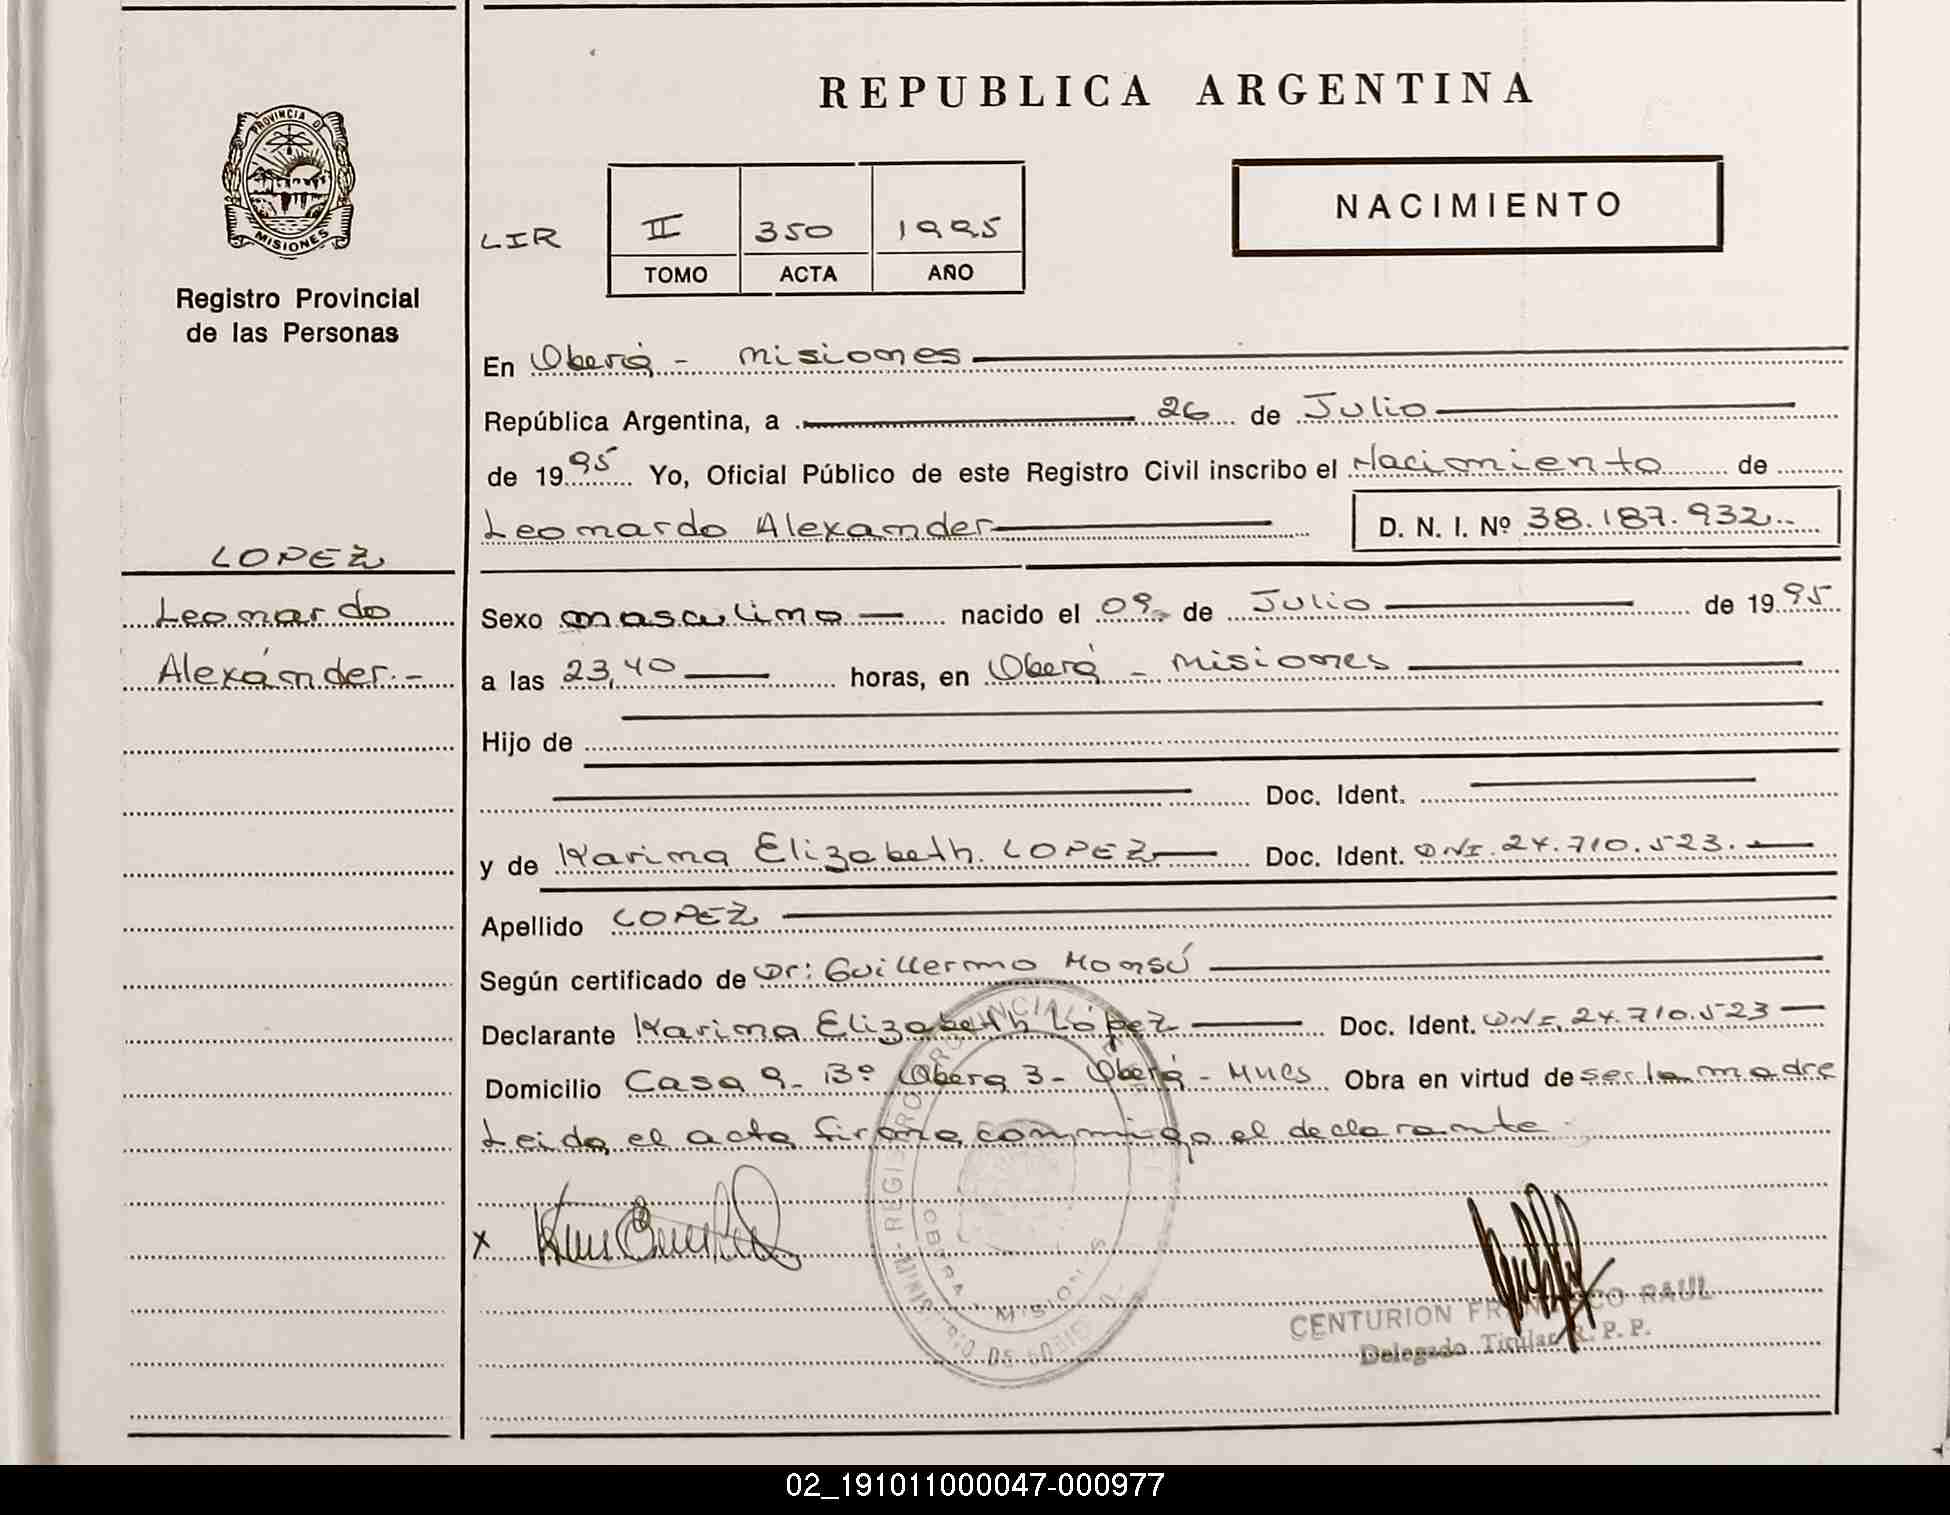 REPUBLICA ARGENTINA
PROVINCIA DE
MISIONES
Registro Provincial
de las Personas
LIR
II 350 1995
TOMO ACTA AÑO
NACIMIENTO
En Oberá - Misiones
República Argentina, a 26 de Julio
de 1995 Yo, Oficial Público de este Registro Civil inscribo el Nacimiento de
Leonardo Alexander D. N. I. Nº 38.187.932.-
LOPEZ
Leonardo
Alexánder.-
Sexo masculino nacido el 09 de Julio de 1995
a las 23,40 horas, en Oberá - Misiones
Hijo de
Doc. Ident.
y de Karina Elizabeth. LOPEZ Doc. Ident. DNI. 24.710.523.
Apellido LOPEZ
Según certificado de Dr: Guillermo
Declarante Karina Elizabeth López Doc. Ident. DNI. 24.710.523
Domicilio Casa 9 - Bº Oberá 3 - Oberá - Mnes Obra en virtud de ser la madre
Leida el acta firma conmigo el declarante
x
OBERA MISIONES
CENTURION FRANCISCO RAUL
Delegado Titular R. P. P.
02_191011000047-000977